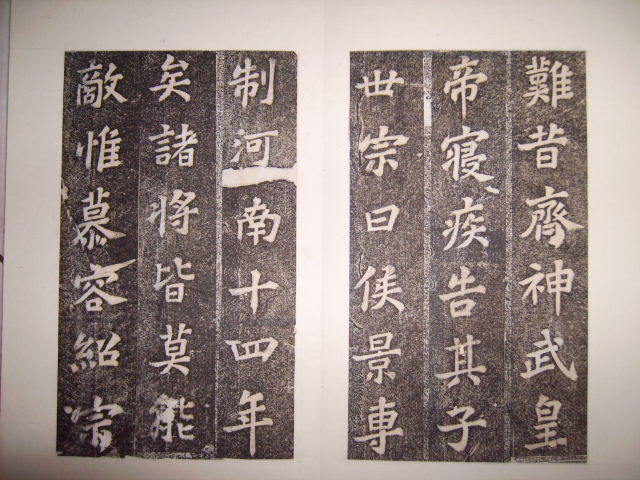 難昔齊神武皇
帝寝疾告其子
世宗曰侯景專
制河南十四年
矣諸將皆莫能
敵惟慕容紹宗